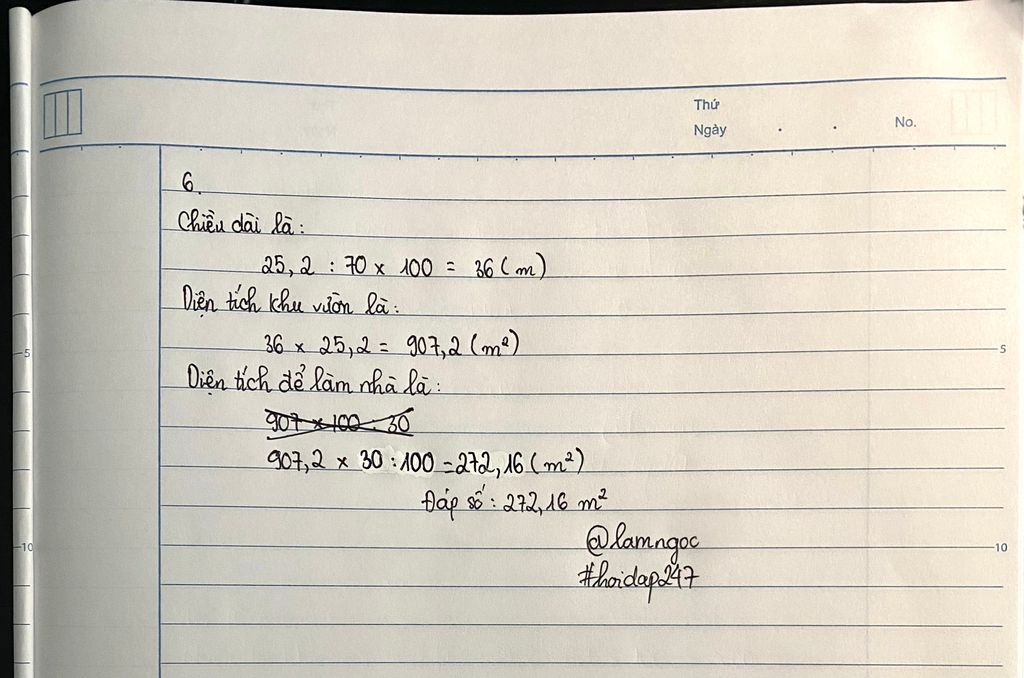 Thứ
Ngày . . No.
6.
Chiều dài là:
25,2 : 70 x 100 = 36 (m)
Diện tích khu vườn là:
36 x 25,2 = 907,2 (m²)
Diện tích để làm nhà là:
907 x 100 : 30
907,2 x 30 : 100 = 272,16 (m²)
Đáp số: 272,16 m²
@lamngoc
#hoidap247
5 5
10 10